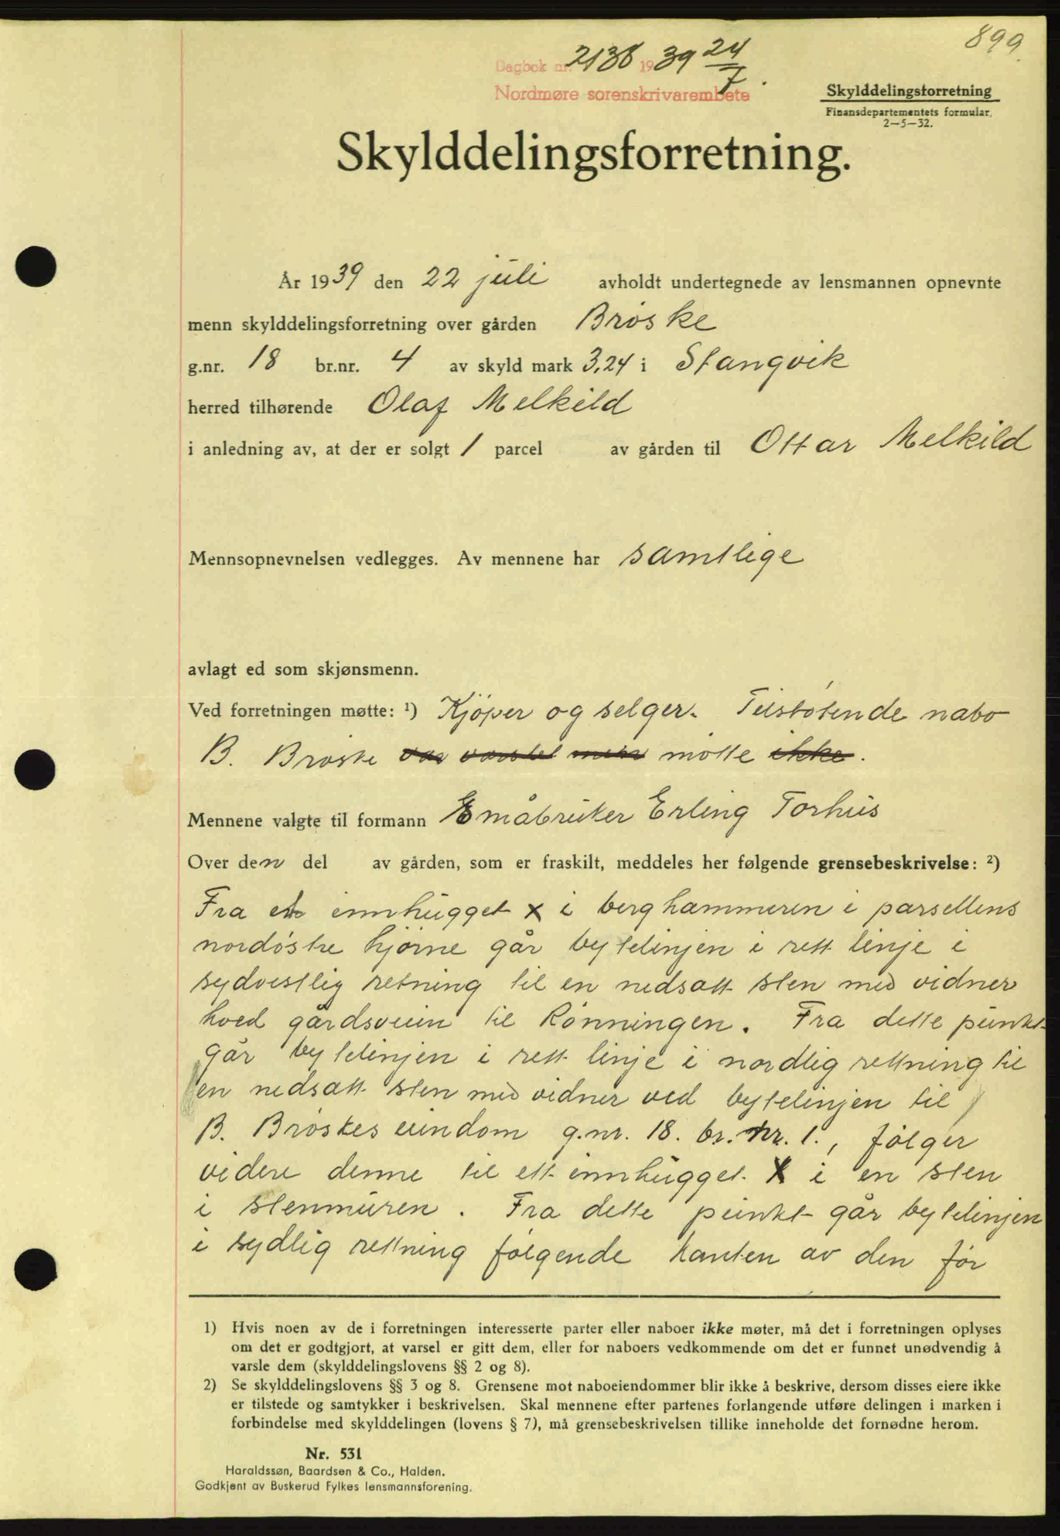 899
Dagbok nr. 2138 1939 24/7.
Nordmøre sorenskrivarembete
Skylddelingsforretning
Finansdepartementets formular.
2—5—32.
Skylddelingsforretning.
År 1939 den 22 juli avholdt undertegnede av lensmannen opnevnte
menn skylddelingsforretning over gården Brøske
g.nr. 18 br.nr. 4 av skyld mark 3,24 i Stangvik
herred tilhørende Olaf Melkild
i anledning av, at der er solgt 1 parcel av gården til Ottar Melkild
Mennsopnevnelsen vedlegges. Av mennene har samtlige
avlagt ed som skjønsmenn.
Ved forretningen møtte: ¹) Kjöper og selger. Tilstøtende nabo
B. Brøske møtte .
Mennene valgte til formann Småbruker Erling Torhus
Over den del av gården, som er fraskilt, meddeles her følgende grensebeskrivelse: ²)
Fra et innhugget X i berghammeren i parsellens
nordøstre hjørne går bytelinjen i rett linje i
sydvestlig retning til en nedsatt sten med vidner
hved gårdsveien til Rønningen. Fra dette punkt
går bytelinjen i rett linje i nordlig rettning til
en nedsatt sten med vidner ved bytelinjen til
B. Brøskes eiendom g.nr. 18. br. nr. 1., følger
videre denne til ett innhugget X i en sten
i stenmuren. Fra dette punkt går bytelinjen
i sydlig rettning følgende kanten av den før
1) Hvis noen av de i forretningen interesserte parter eller naboer ikke møter, må det i forretningen oplyses
om det er godtgjort, at varsel er gitt dem, eller for naboers vedkommende om det er funnet unødvendig å
varsle dem (skylddelingslovens §§ 2 og 8).
2) Se skylddelingslovens §§ 3 og 8. Grensene mot naboeiendommer blir ikke å beskrive, dersom disses eiere ikke
er tilstede og samtykker i beskrivelsen. Skal mennene efter partenes forlangende utføre delingen i marken i
forbindelse med skylddelingen (lovens § 7), må grensebeskrivelsen tillike inneholde det fornødne herom.
Nr. 531
Haraldssøn, Baardsen & Co., Halden.
Godkjent av Buskerud Fylkes lensmannsforening.